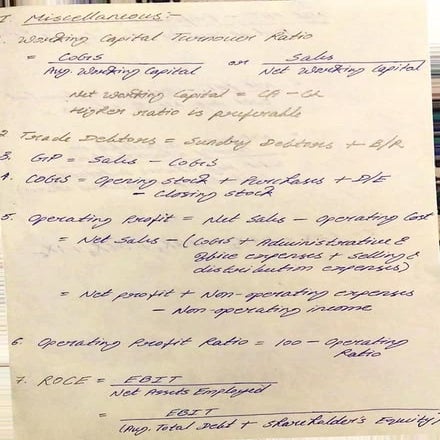 I. Miscellaneous:-
1. Working Capital Turnover Ratio
= COGS / Avg. Working Capital or Sales / Net Working Capital
Net Working Capital = CA - CL
Higher ratio is preferable
2. Trade Debtors = Sundry Debtors + B/R
3. GP = Sales - COGS
4. COGS = Opening Stock + Purchases + D/E
- Closing Stock
5. Operating Profit = Net Sales - Operating Cost
= Net Sales - (COGS + Administrative &
Office expenses + Selling &
distribution expenses)
= Net profit + Non-operating expenses
- Non-operating income
6. Operating Profit Ratio = 100 - Operating
Ratio
7. ROCE = EBIT / Net Assets Employed
= EBIT / (Avg. Total Debt + Shareholder's Equity)